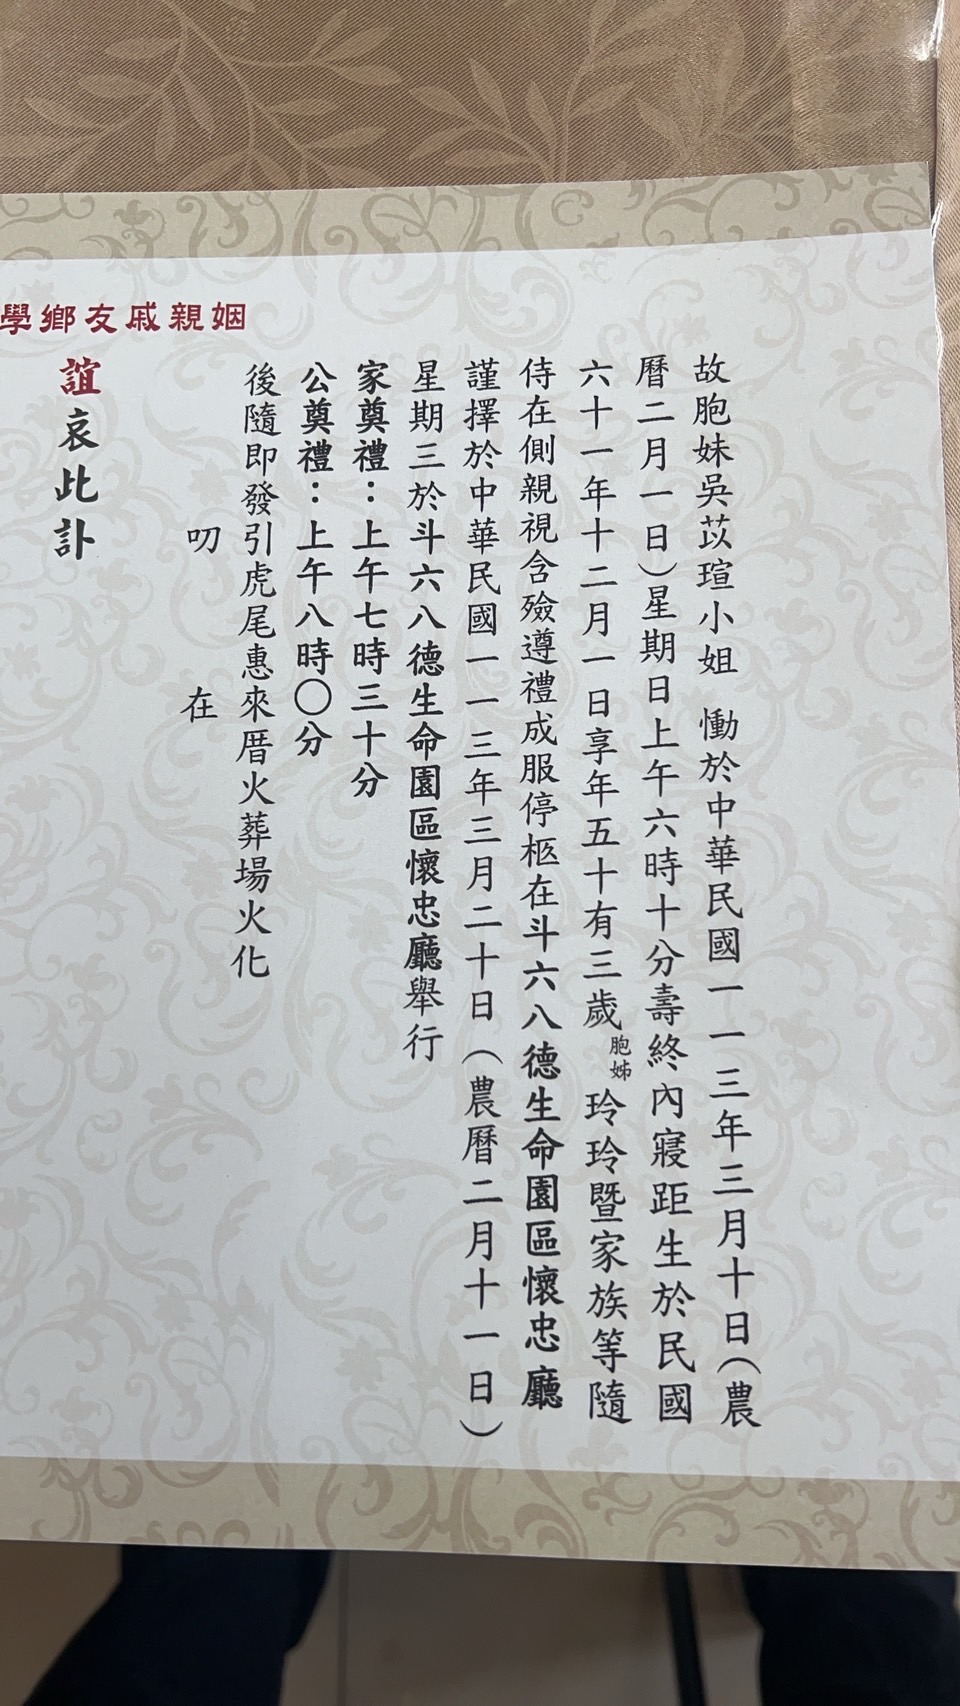 故胞妹吳苡瑄小姐 慟於中華民國一一三年三月十日(農
曆二月一日)星期日上午六時十分壽終內寢距生於民國
六十一年十二月一日享年五十有三歲 胞姊 玲玲暨家族等隨
侍在側親視含殮遵禮成服停柩在斗六八德生命園區懷忠廳
謹擇於中華民國一一三年三月二十日(農曆二月十一日)
星期三於斗六八德生命園區懷忠廳舉行
家奠禮：上午七時三十分
公奠禮：上午八時〇分
後隨即發引虎尾惠來厝火葬場火化
叨 在
姻親戚友鄉學
誼哀此訃